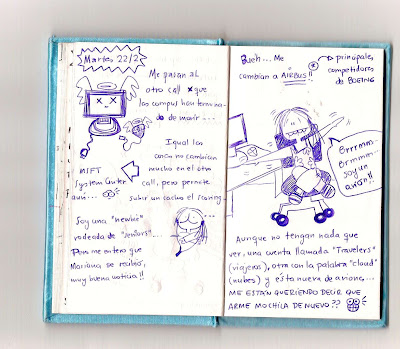 Martes 22/2
Me pasan al
otro call x que
las compus han termina-
do de morir...
Igual las
cosas no cambian
mucho en el otro
call, pero permite
subir un cacho el
MIFT
System Center
aún...
Soy una "newbie"
rodeada de "seniors"...
Pero me entero que
Mariana se recibió,
muy buena noticia!!
Bueh... Me
cambian a AIRBUS!!
* principales
competidores
de BOEING
Brrmmm..
Brmmm..
soy un
avión!!
Aunque no tengan nada que
ver, una cuenta llamada "Travelers"
(viajeros), otra con la palabra "cloud"
(nubes) y esta nueva de avione...
ME ESTÁN QUERIENDO DECIR QUE
ARME MOCHILA DE NUEVO??